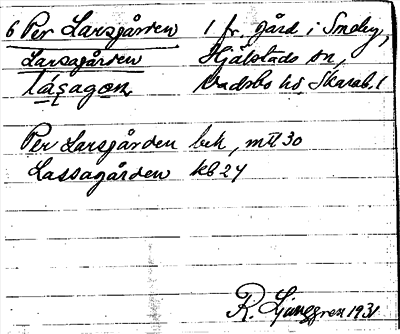 6 Per Larsgården 1 fr. gård i Småby,
Larsagården Hjälstads sn,
låsagọn Vadsbo hd Skarab. l
Per Larsgården bek, mtl 30
Lassagården KB 24
R. Ljunggren 1931